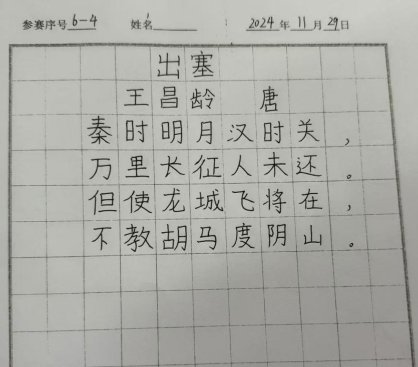 参赛序号 6-4 姓名 2024年11月29日
出塞
王昌龄 唐
秦时明月汉时关，
万里长征人未还。
但使龙城飞将在，
不教胡马度阴山。